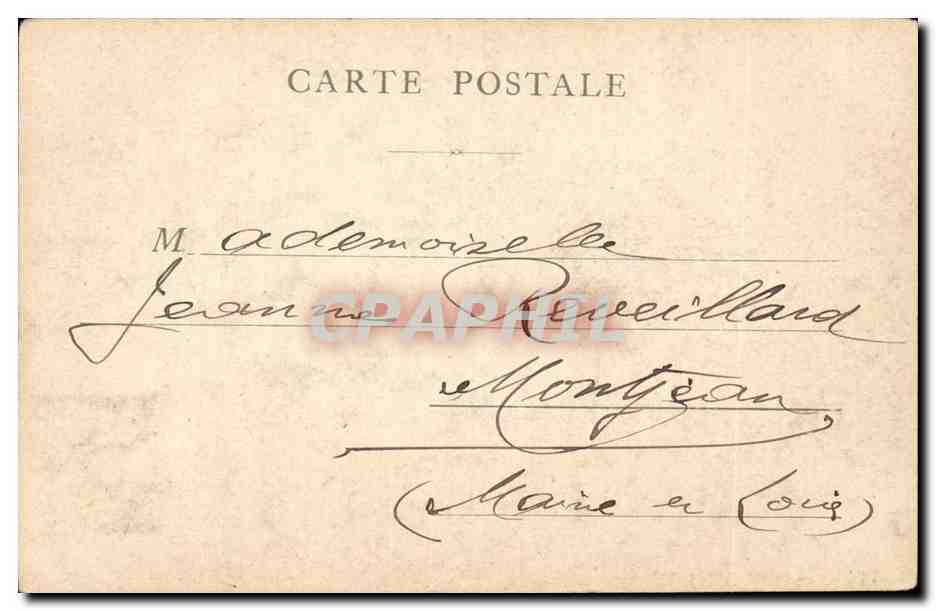 CARTE POSTALE
Mademoiselle
Jeanne Reveillard
CPAPHIL
Montjean
(Maine et Loire)